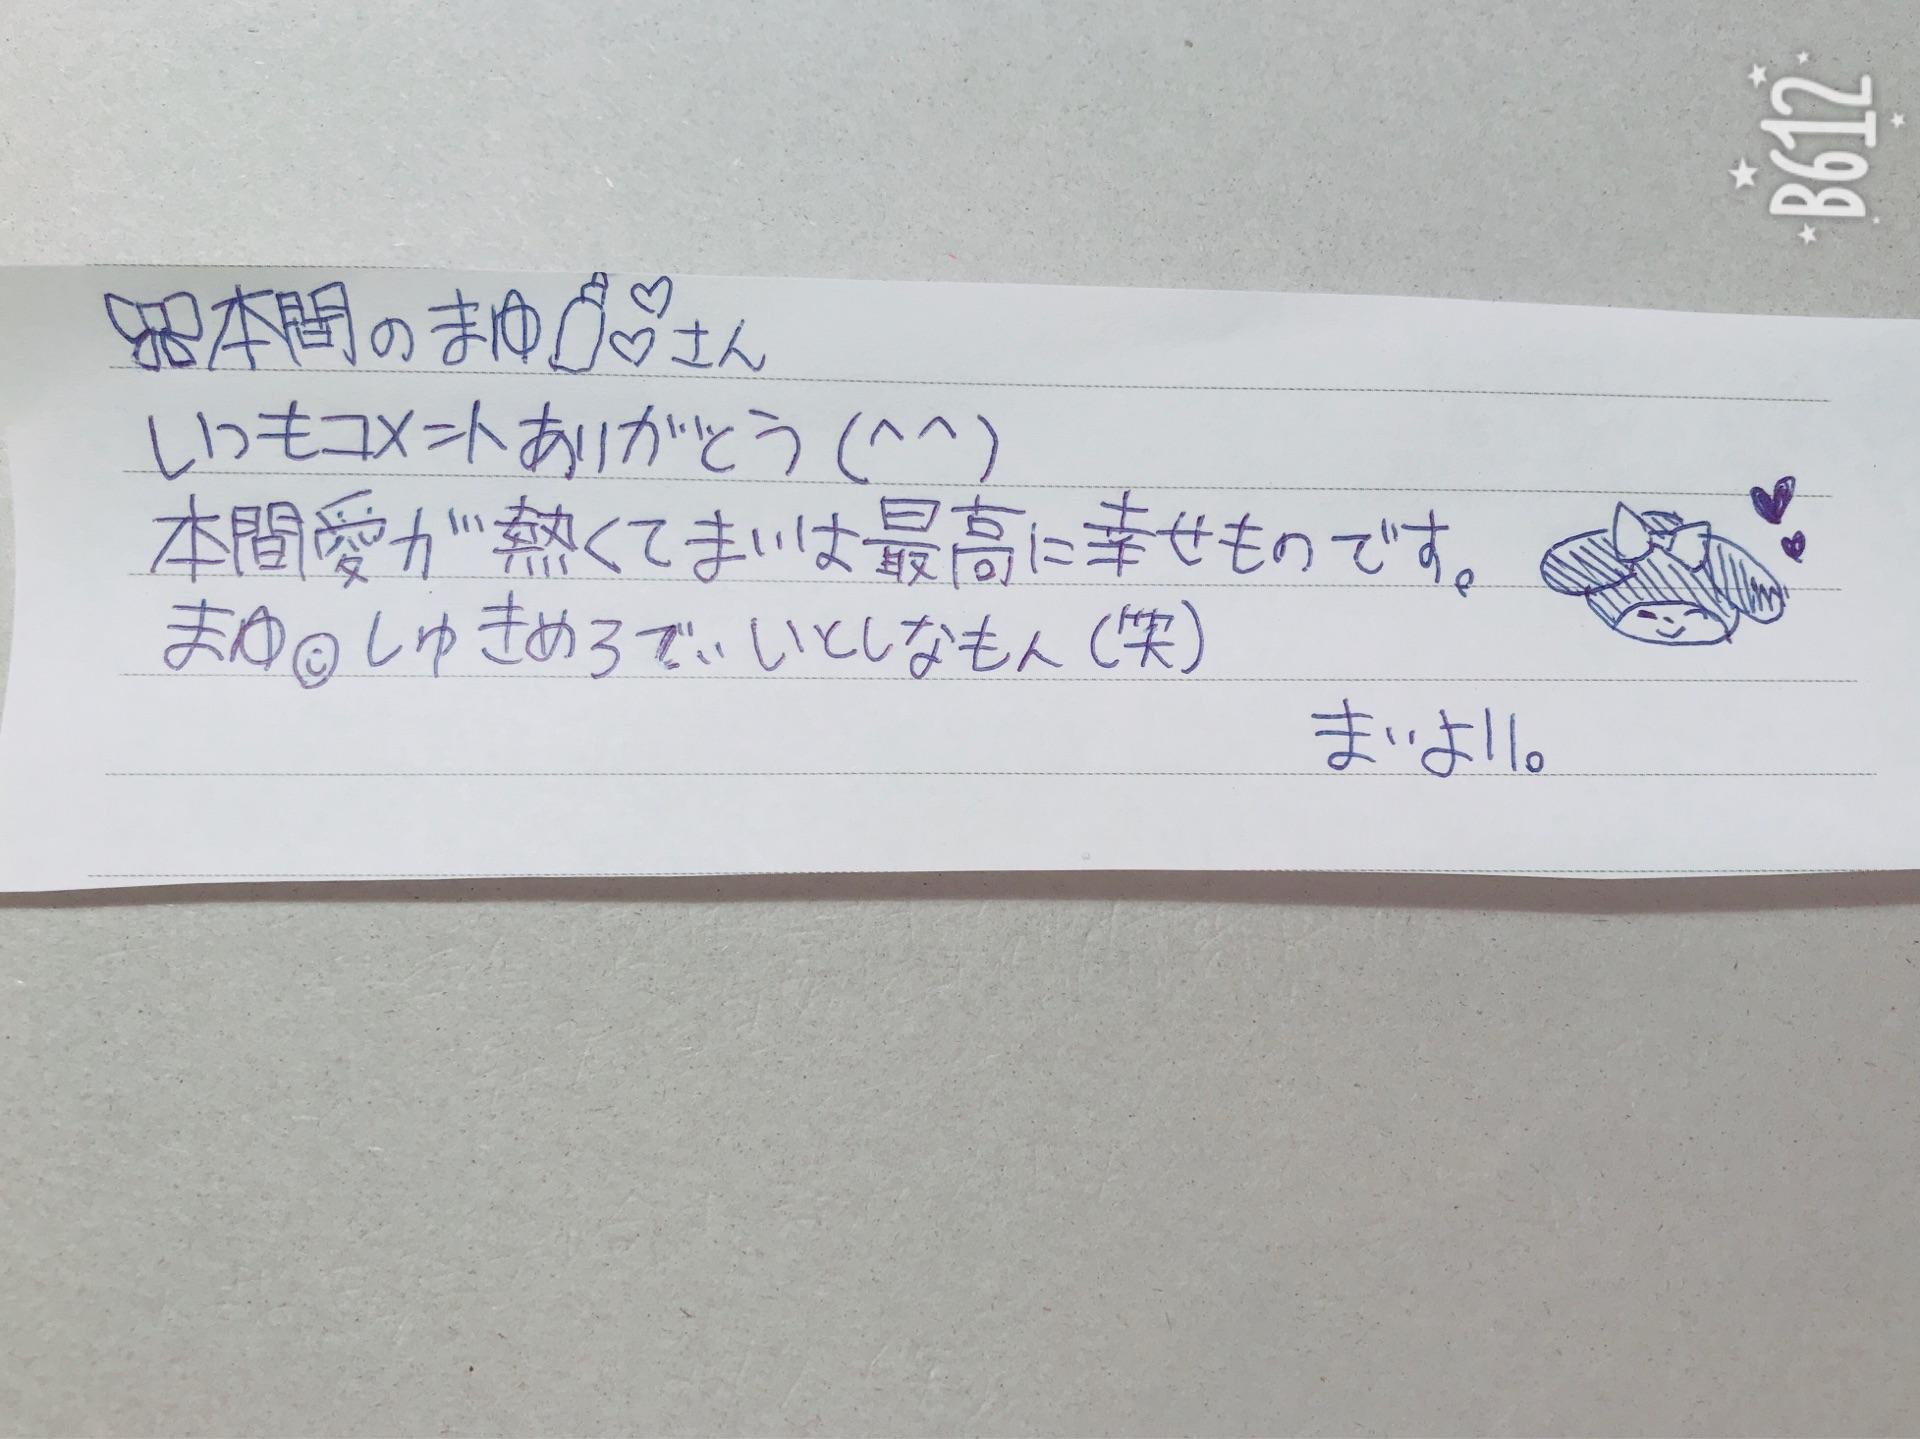 本間のまゆ♡♡さん
いつもコメントありがとう(^^)
本間愛が熱くてまいは最高に幸せものです。
まゆ☺しゅきめろでぃいとしなもん(笑)
まいより。
B612